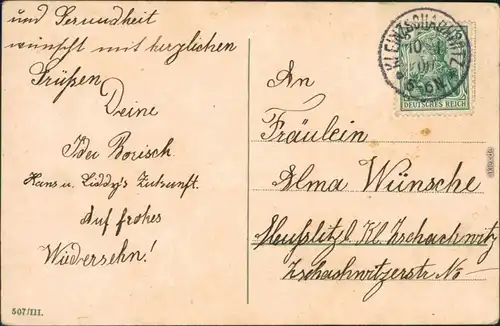 und Gesundheit
wünscht mit herzlichen
Grüßen
Deine
Ida Borisch.
Hans u. Liddy's Zukunft.
Auf frohes
Wiedersehn!
507/III.
KLEINZSCHACHWITZ
DEUTSCHES REICH
An
Fräulein
Alma Wünsche
Kl Zschachwitz
Zschachwitzerstr No